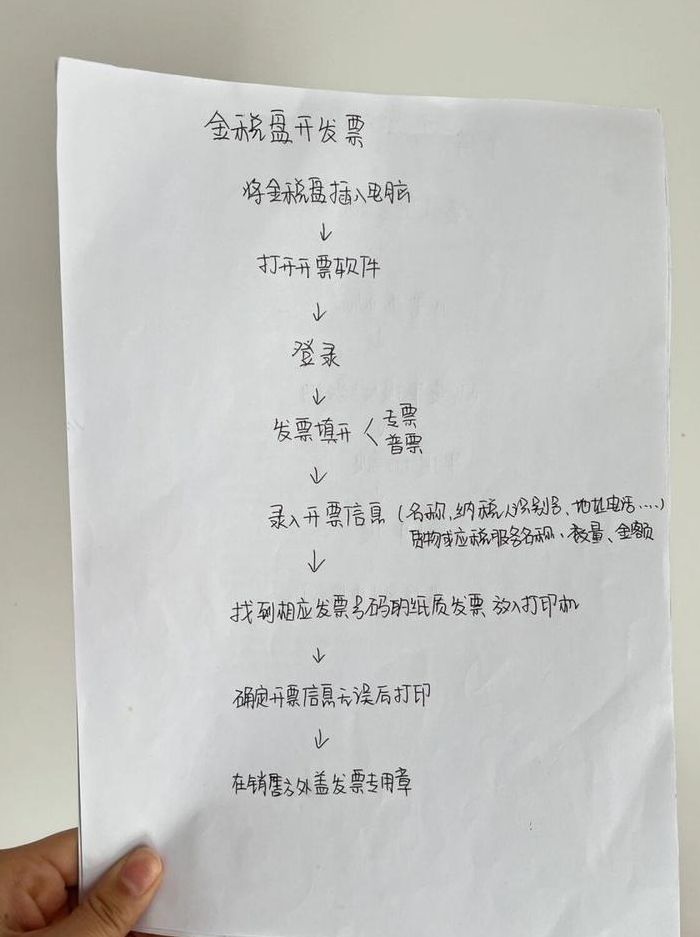 金税盘开发票
将金税盘插入电脑
↓
打开开票软件
↓
登录
↓
发票填开 < 专票
普票
↓
录入开票信息 (名称、纳税人识别号、地址电话....)
货物或应税服务名称、数量、金额
↓
找到相应发票号码的纸质发票 放入打印机
↓
确定开票信息无误后打印
↓
在销售方处盖发票专用章